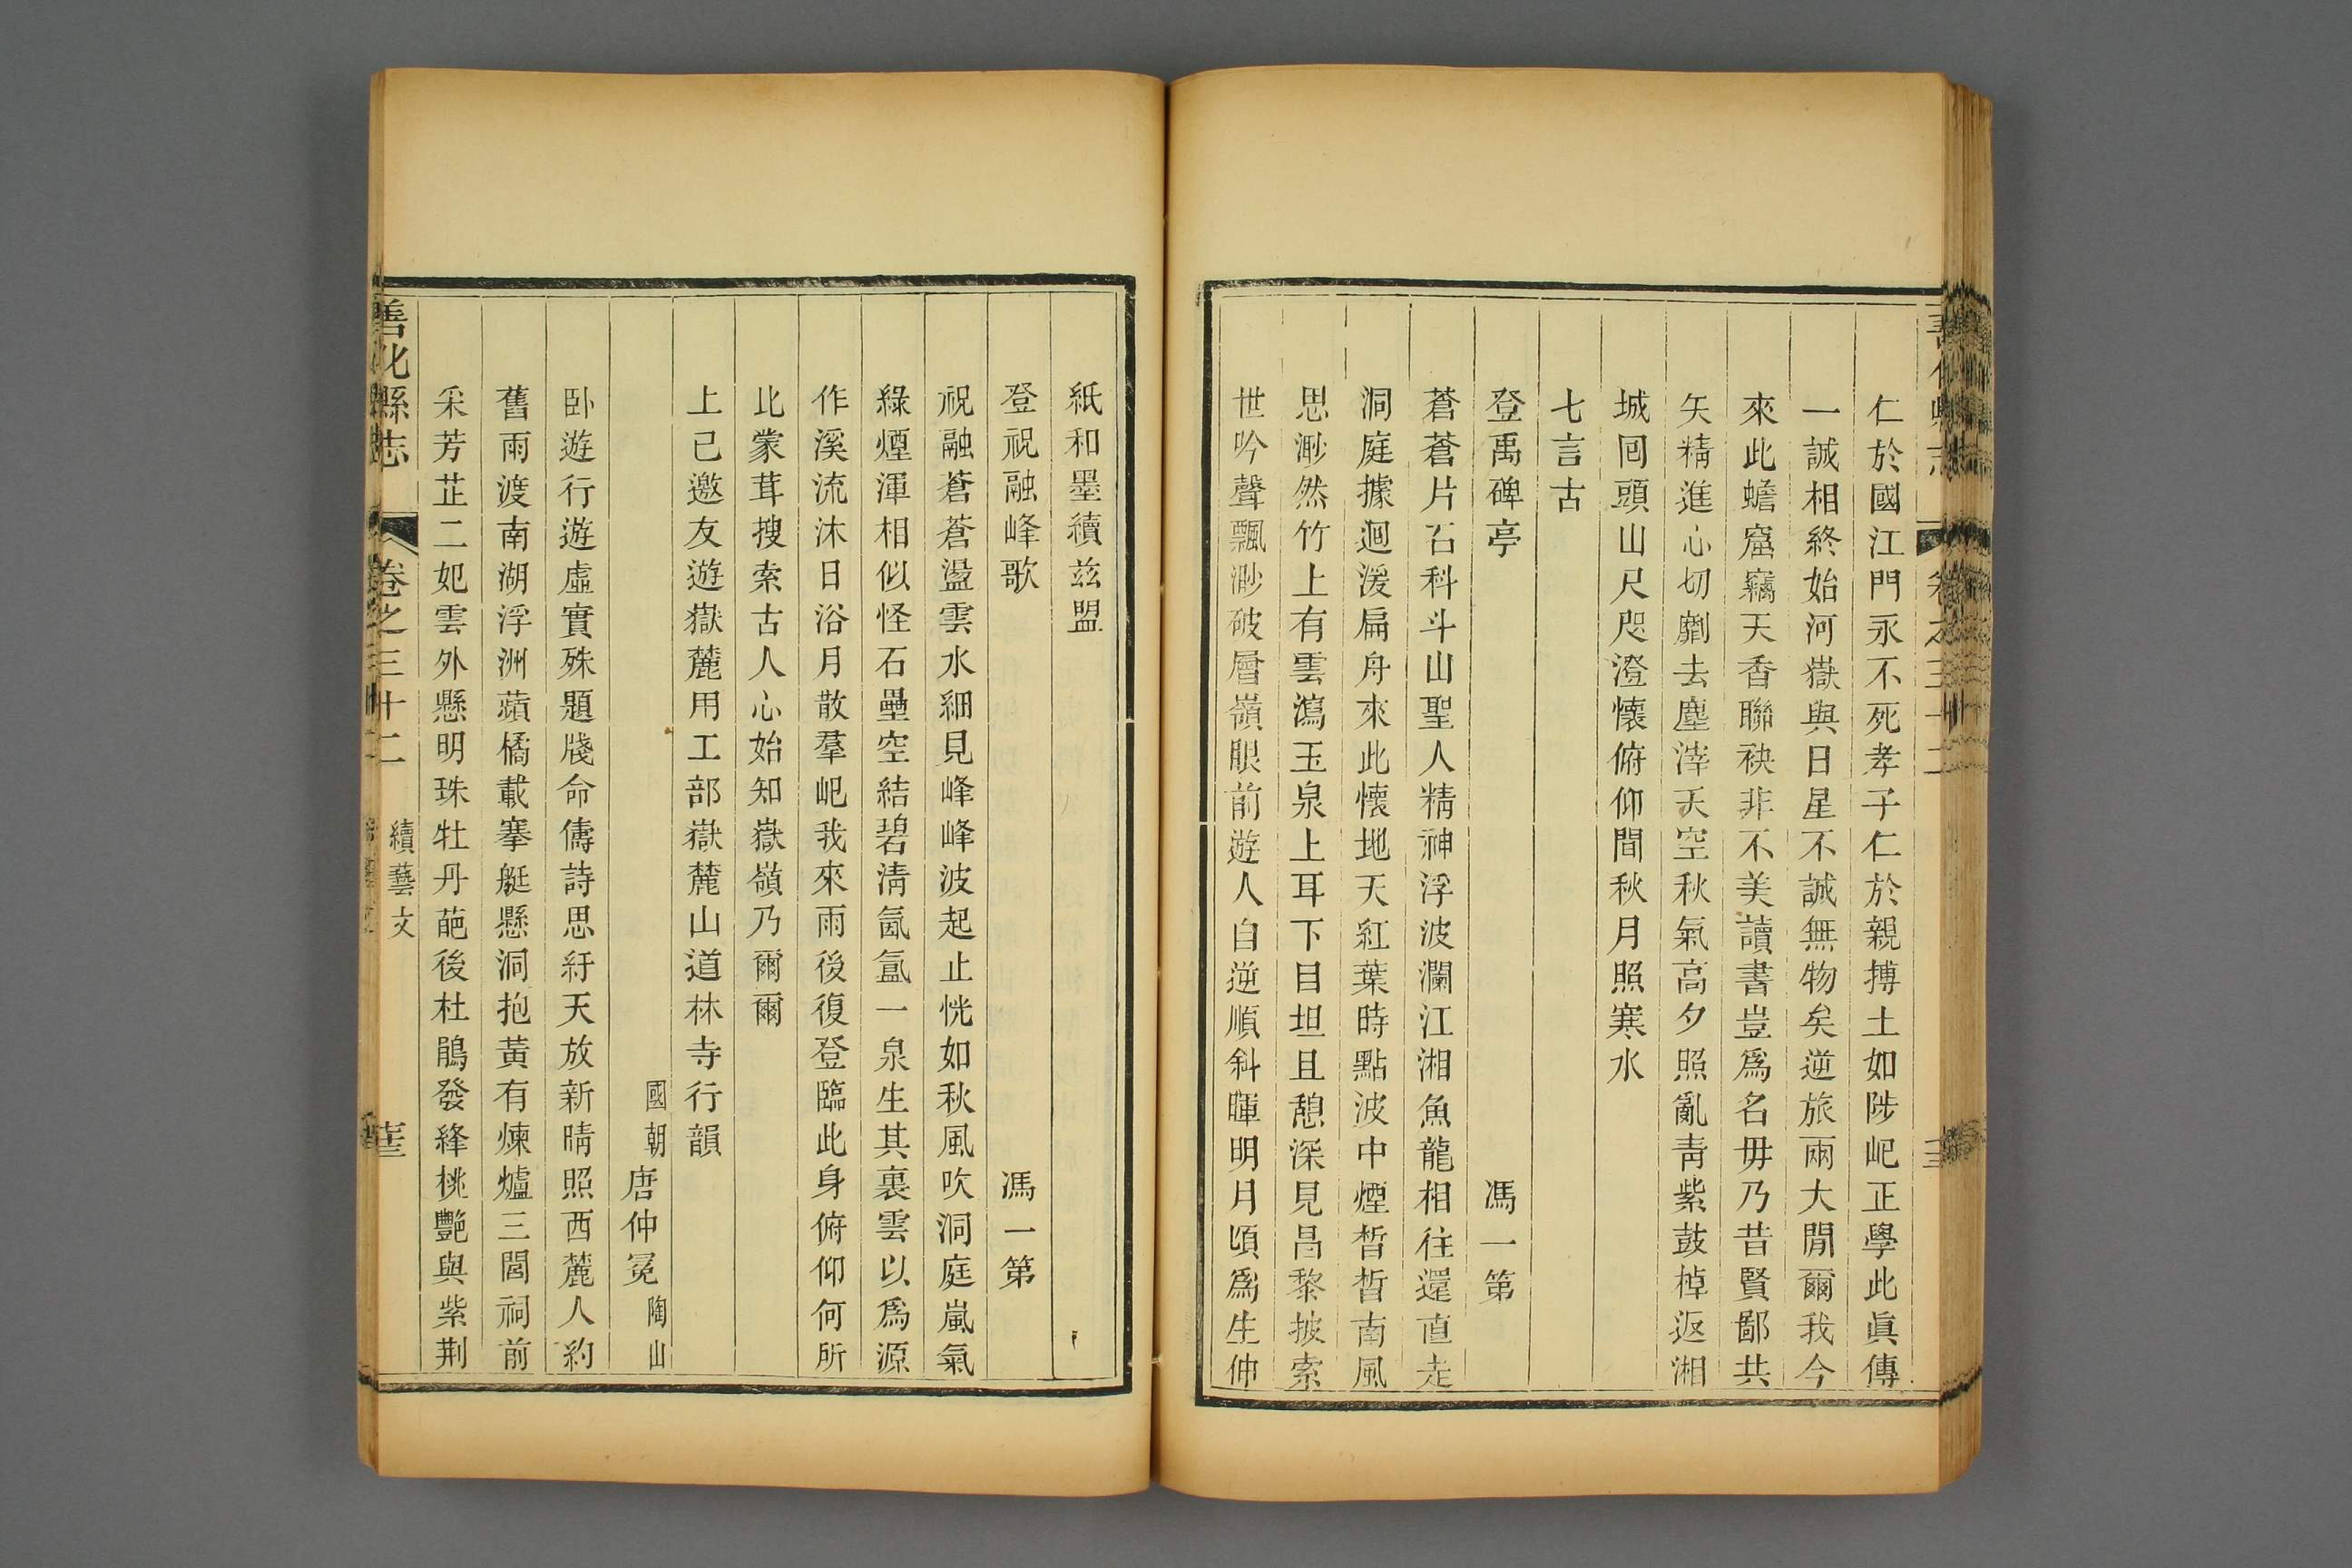 仁於國江門永不死孝子仁於親搏土如陟屺正學此眞傳
一誠相終始河嶽與日星不誠無物矣逆旅兩大閒爾我今
來此蟾窟竊天香聯袂非不美讀書豈爲名毋乃昔賢鄙共
矢精進心切劘去塵滓天空秋氣高夕照亂靑紫鼓棹返湘
城回頭山尺咫澄懷俯仰間秋月照寒水
七言古
登禹碑亭 馮一第
蒼蒼片石科斗山聖人精神浮波瀾江湘魚龍相往還直走
洞庭據迴湲扁舟來此懷地天紅葉時點波中煙晳晳南風
思渺然竹上有雲瀉玉泉上耳下目坦且憩深見昌黎披索
世吟聲飄渺破層嶺眼前遊人自逆順斜暉明月頃爲生仲
紙和墨續兹盟
登祝融峰歌 馮一第
祝融蒼蒼盪雲水細見峰峰波起止恍如秋風吹洞庭嵐氣
綠煙渾相似怪石壘空結碧淸氤氳一泉生其裏雲以爲源
作溪流沐日浴月散羣屺我來雨後復登臨此身俯仰何所
比蒙茸搜索古人心始知嶽嶺乃爾爾
上已邀友遊嶽麓用工部嶽麓山道林寺行韻
國朝唐仲冕陶山
卧遊行遊虛實殊題牋命儔詩思紆天放新晴照西麓人約
舊雨渡南湖浮洲蘋橘載搴艇懸洞抱黃有煉爐三閭祠前
采芳芷二妃雲外懸明珠牡丹葩後杜鵑發絳桃艷與紫荆
善化縣志 卷之三十二 續藝文